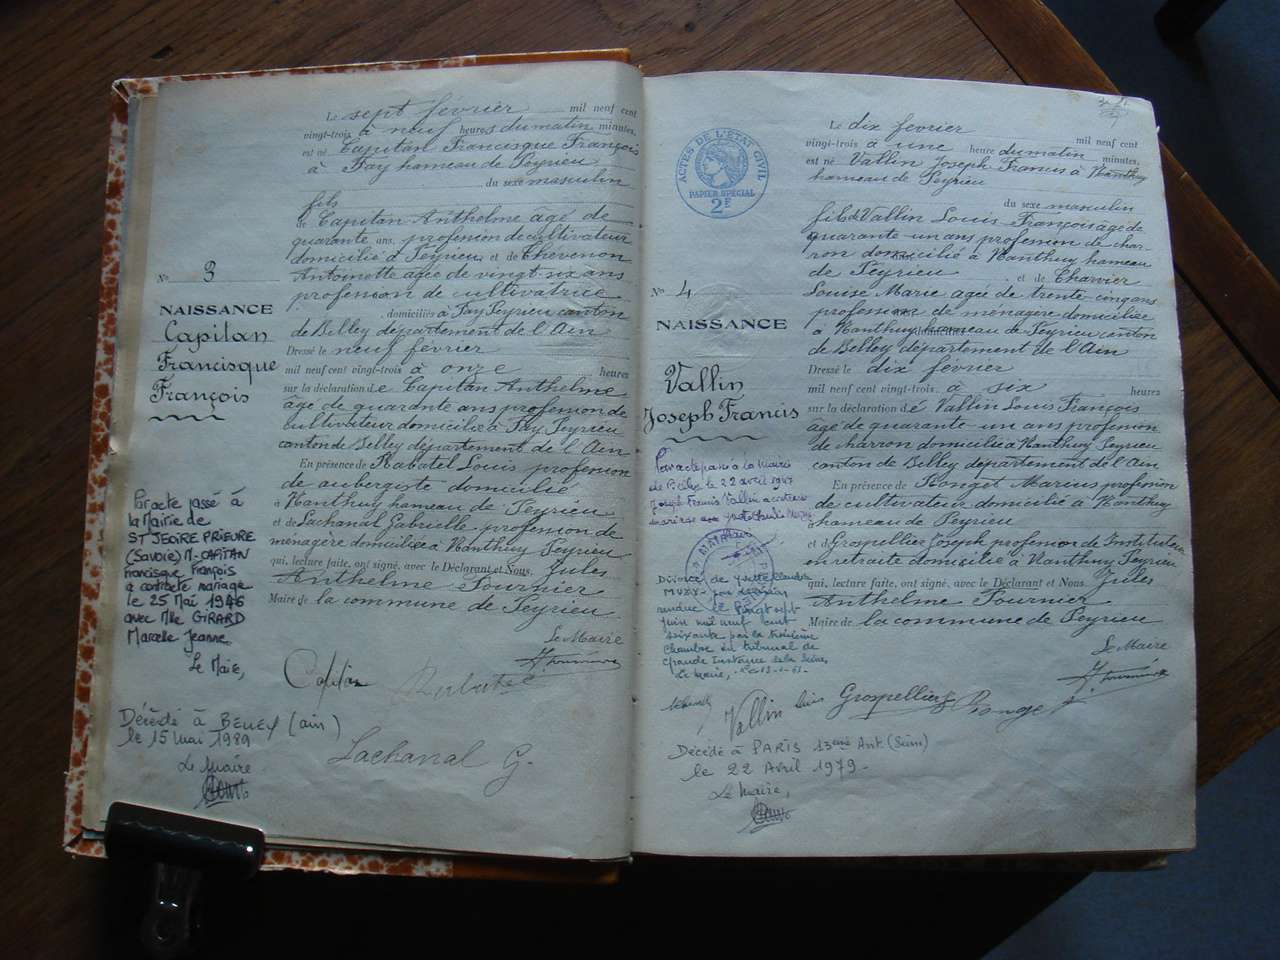 Le sept février mil neuf cent
vingt-trois à neuf heures du matin minutes,
est né Capitan Francisque François
à Fay hameau de Peyrieu
du sexe masculin
fils
de Capitan Anthelme âgé de
quarante ans, profession de cultivateur
domicilié à Peyrieu et de Chevenon
Antoinette âgée de vingt-six ans
profession de cultivatrice
domiciliés à Fay Peyrieu canton
de Belley département de l'Ain
Dressé le neuf février
mil neuf cent vingt-trois à onze heures
sur la déclaration de Capitan Anthelme
âgé de quarante ans profession de
cultivateur domicilié à Fay Peyrieu
canton de Belley département de l'Ain
En présence de Rabatel Louis profession
de aubergiste domicilié
à Nanthuy hameau de Peyrieu
et de Lachanal Gabrielle profession de
ménagère domiciliée à Nanthuy Peyrieu
qui, lecture faite, ont signé, avec le Déclarant et Nous, Jules
Anthelme Fournier
Maire de la commune de Peyrieu
Le Maire
J. Fournier
Capitan Rabatel
Lachanal G.
No 3
NAISSANCE
Capitan
Francisque
François
Par acte passé à
la Mairie de
ST JEOIRE PRIEURE
(Savoie) M. CAPITAN
Francisque François
a contracté mariage
le 25 Mai 1946
avec Mlle GIRARD
Marcelle Jeanne
Le Maire,
Décédé à BELLEY (ain)
le 15 mai 1989
Le Maire
Le dix février mil neuf cent
vingt-trois à une heure du matin minutes,
est né Vallin Joseph Francis à Nanthuy
hameau de Peyrieu
du sexe masculin
fils de Vallin Louis François âgé de
quarante-un ans profession de char-
ron domicilié à Nanthuy hameau
de Peyrieu et de Charvier
Louise Marie agée de trente-cinq ans
profession de ménagère domiciliée
à Nanthuy hameau de Peyrieu canton
de Belley département de l'Ain
Dressé le dix février
mil neuf cent vingt-trois à six heures
sur la déclaration dé Vallin Louis François
âgé de quarante-un ans profession
de charron domicilié à Nanthuy Peyrieu
canton de Belley département de l'Ain
En présence de Ronget Marius profession
de cultivateur domicilié à Nanthuy
hameau de Peyrieu
et de Grospellier Joseph profession de Instituteur
en retraite domicilié à Nanthuy Peyrieu
qui, lecture faite, ont signé, avec le Déclarant et Nous, Jules
Anthelme Fournier
Maire de la commune de Peyrieu
Le Maire
J. Fournier
Vallin Grospellier J. Ronget
ACTES DE L'ÉTAT CIVIL
PAPIER SPÉCIAL
2F
No 4
NAISSANCE
Vallin
Joseph Francis
Par acte passé à la Mairie
le 22 avril 1947
Joseph Francis Vallin a contracté
mariage avec
Divorcé de Yvette Claudia
MUZY par
rendue le vingt sept
juin mil neuf cent
soixante par la troisième
Chambre du tribunal de
Grande Instance de la Seine,
Le Maire,
Décédé à PARIS 13ème Art. (Seine)
le 22 Avril 1979-
Le Maire,